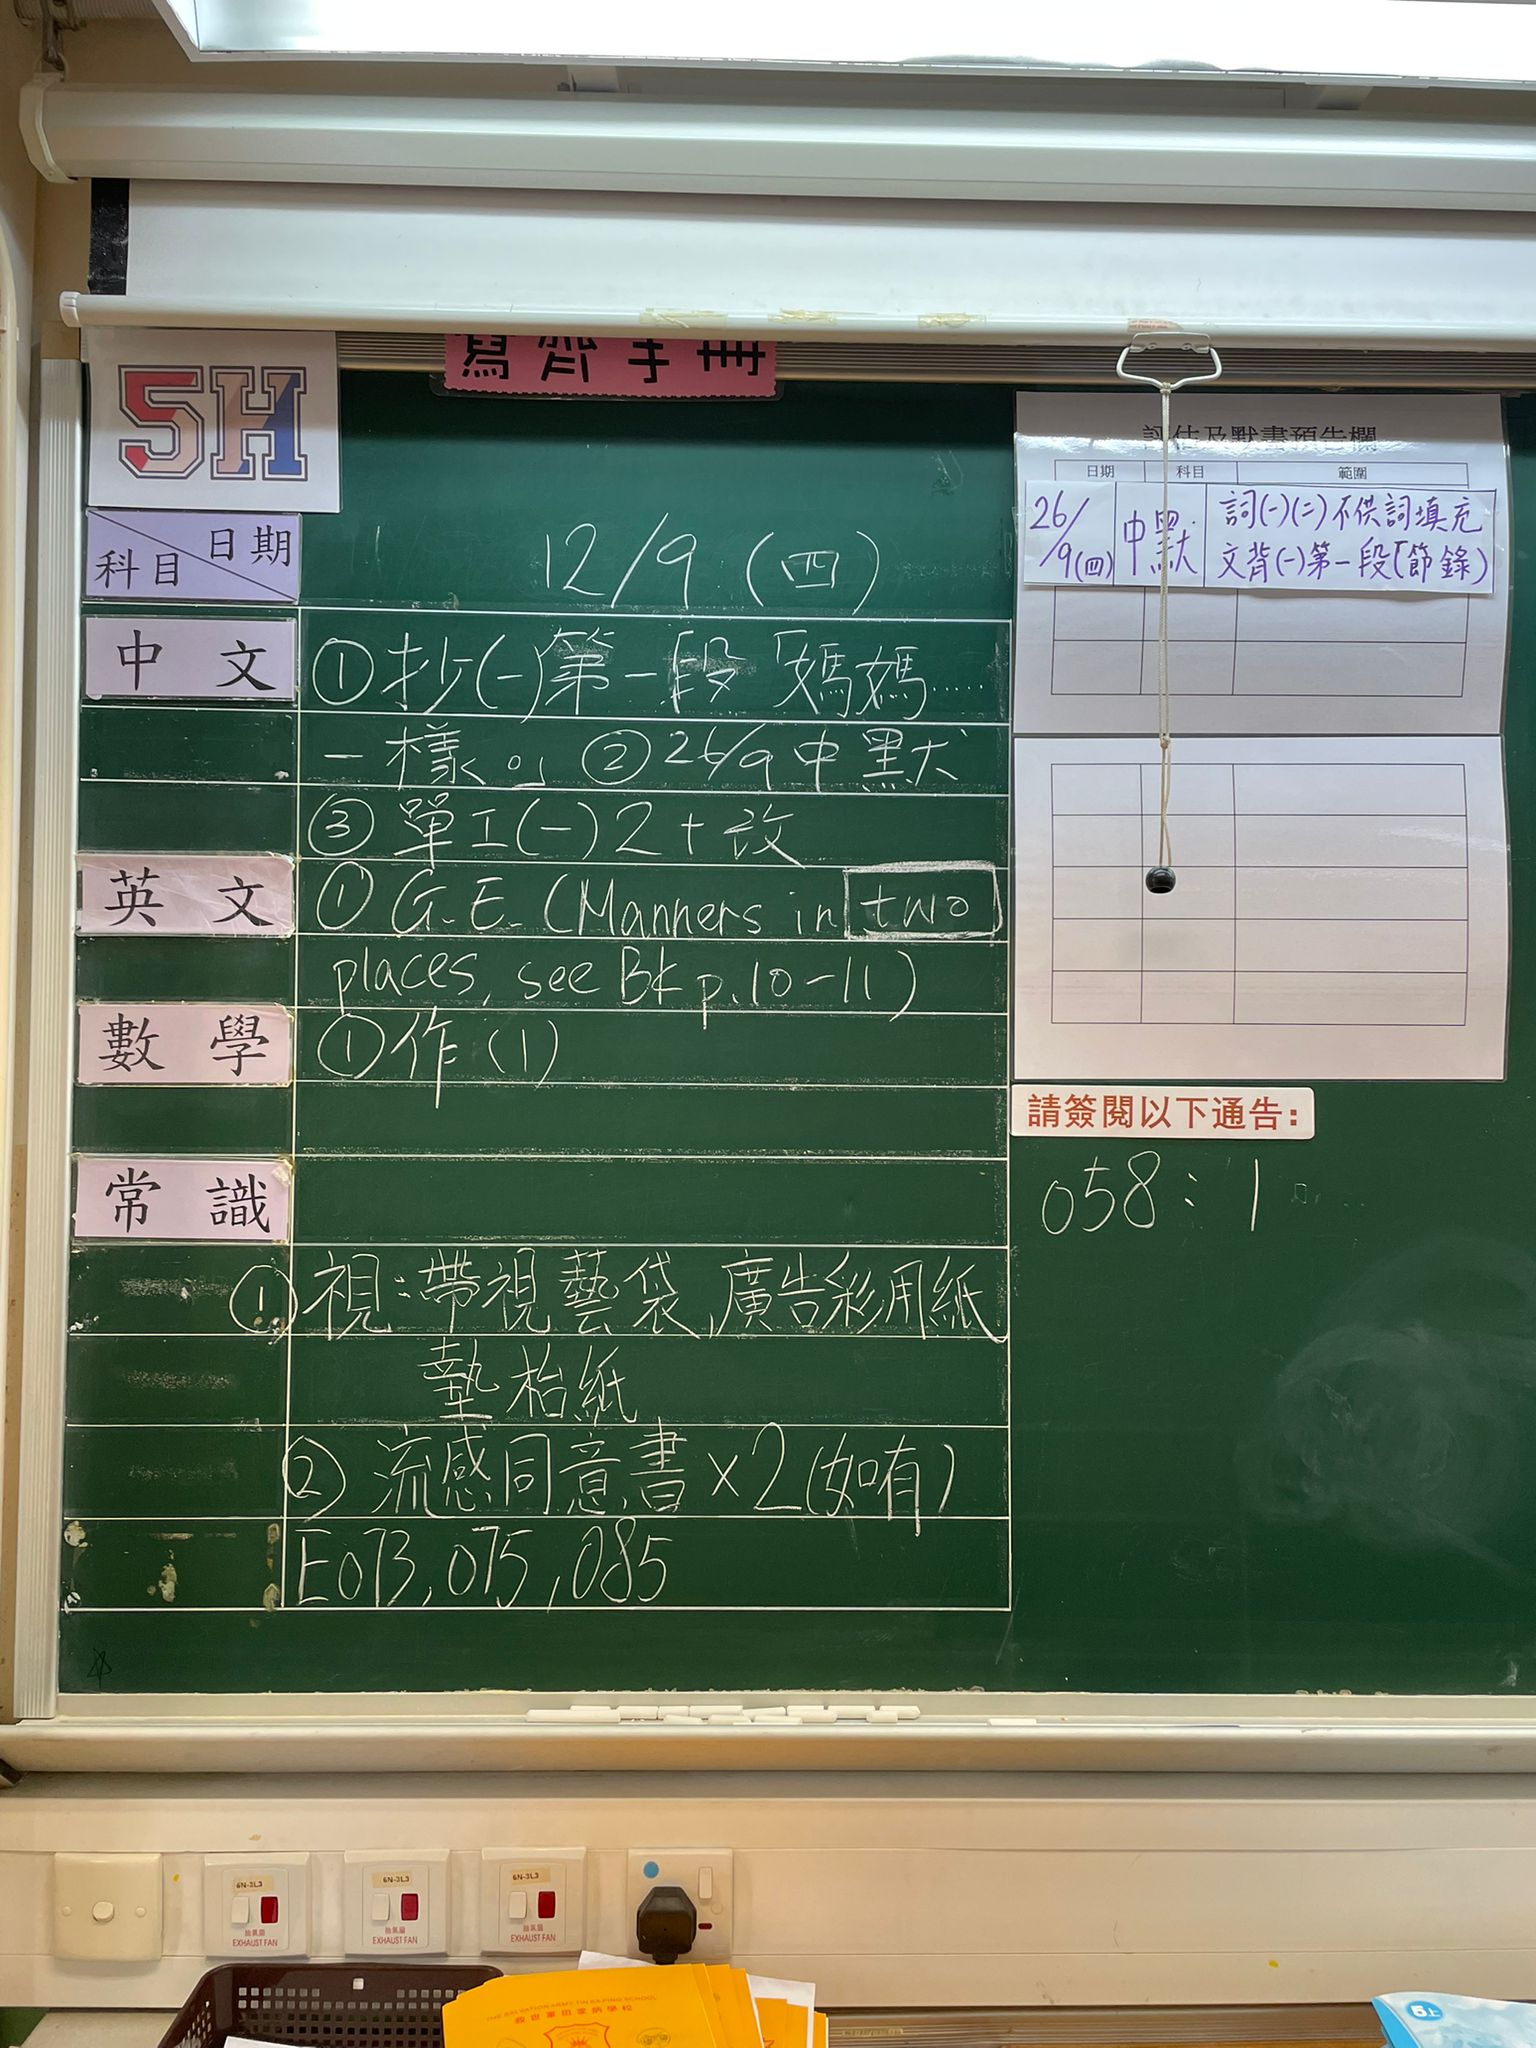 寫齊手冊
5H
日期
科目
12/9 (四)
中文
①抄(一)第一段「媽媽……
一樣。」②26/9中默
③單工(一)2+改
英文
① G.E. (Manners in two
places, see Bk p.10-11)
數學
①作(1)
常識
①視:帶視藝袋,廣告彩用紙
墊枱紙
②流感同意書×2(如有)
E073,075,085
評估及默書預告欄
日期 科目 範圍
26/9(四) 中默 詞(一)(二)不供詞填充
文背(一)第一段(節錄)
請簽閱以下通告:
058:1
6N-3L3
抽氣扇
EXHAUST FAN
6N-3L3
抽氣扇
EXHAUST FAN
6N-3L3
抽氣扇
EXHAUST FAN
THE SALVATION ARMY TIN KA PING SCHOOL
救世軍田家炳學校
5上